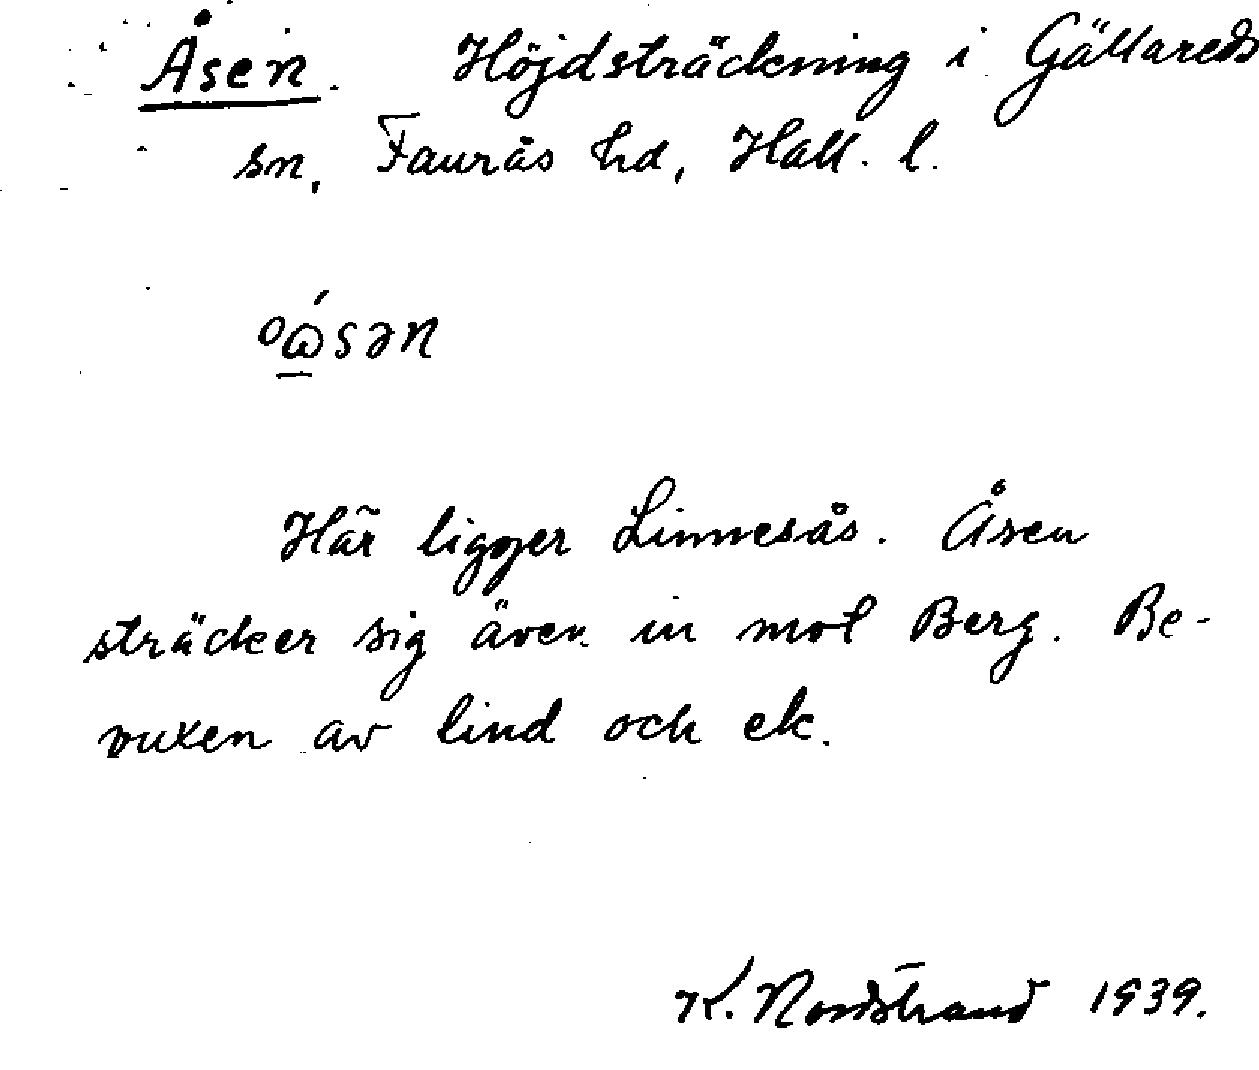 Åsen. Höjdsträckning i Gällareds
sn, Faurås hd, Hall. l.
Här ligger Linnesås. Åsen
sträcker sig även in mot Berg. Be-
vuxen av lind och ek.
K. Nordstrand 1939.